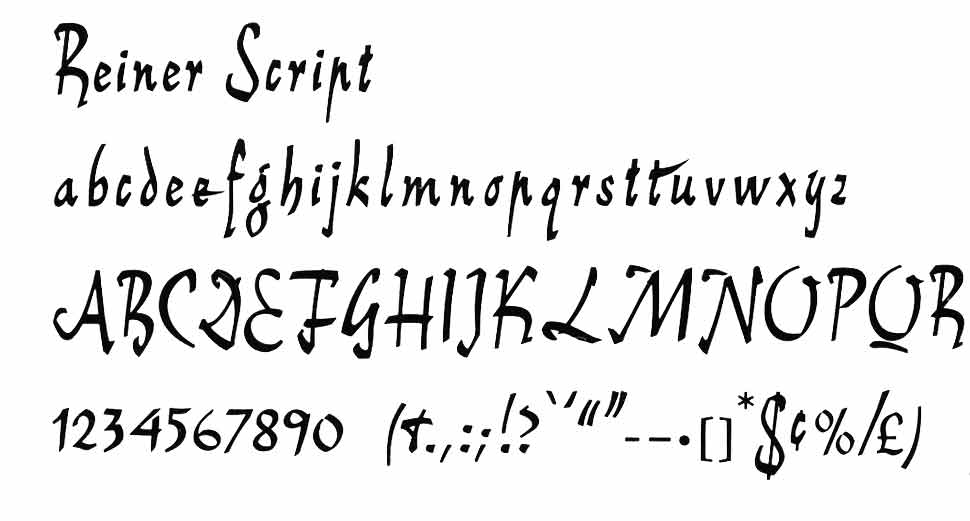 Reiner Script
abcdeefghijklmnopqrsttuvwxyz
ABCDEFGHIJKLMNOPQR
1234567890 (&.,:;!?`´“”--•[]*$¢%/£)